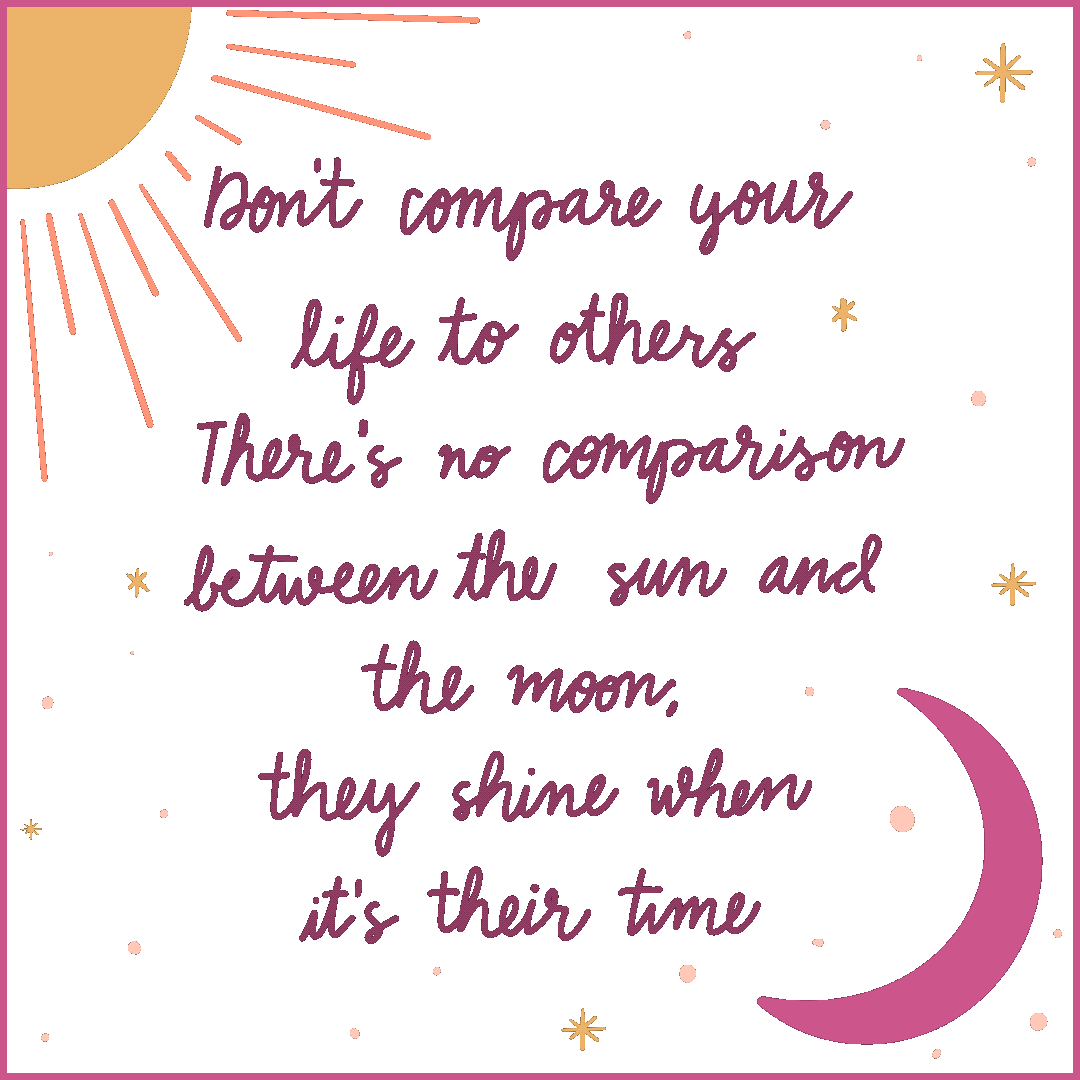 Don't compare your
life to others
There's no comparison
between the sun and
the moon,
they shine when
it's their time